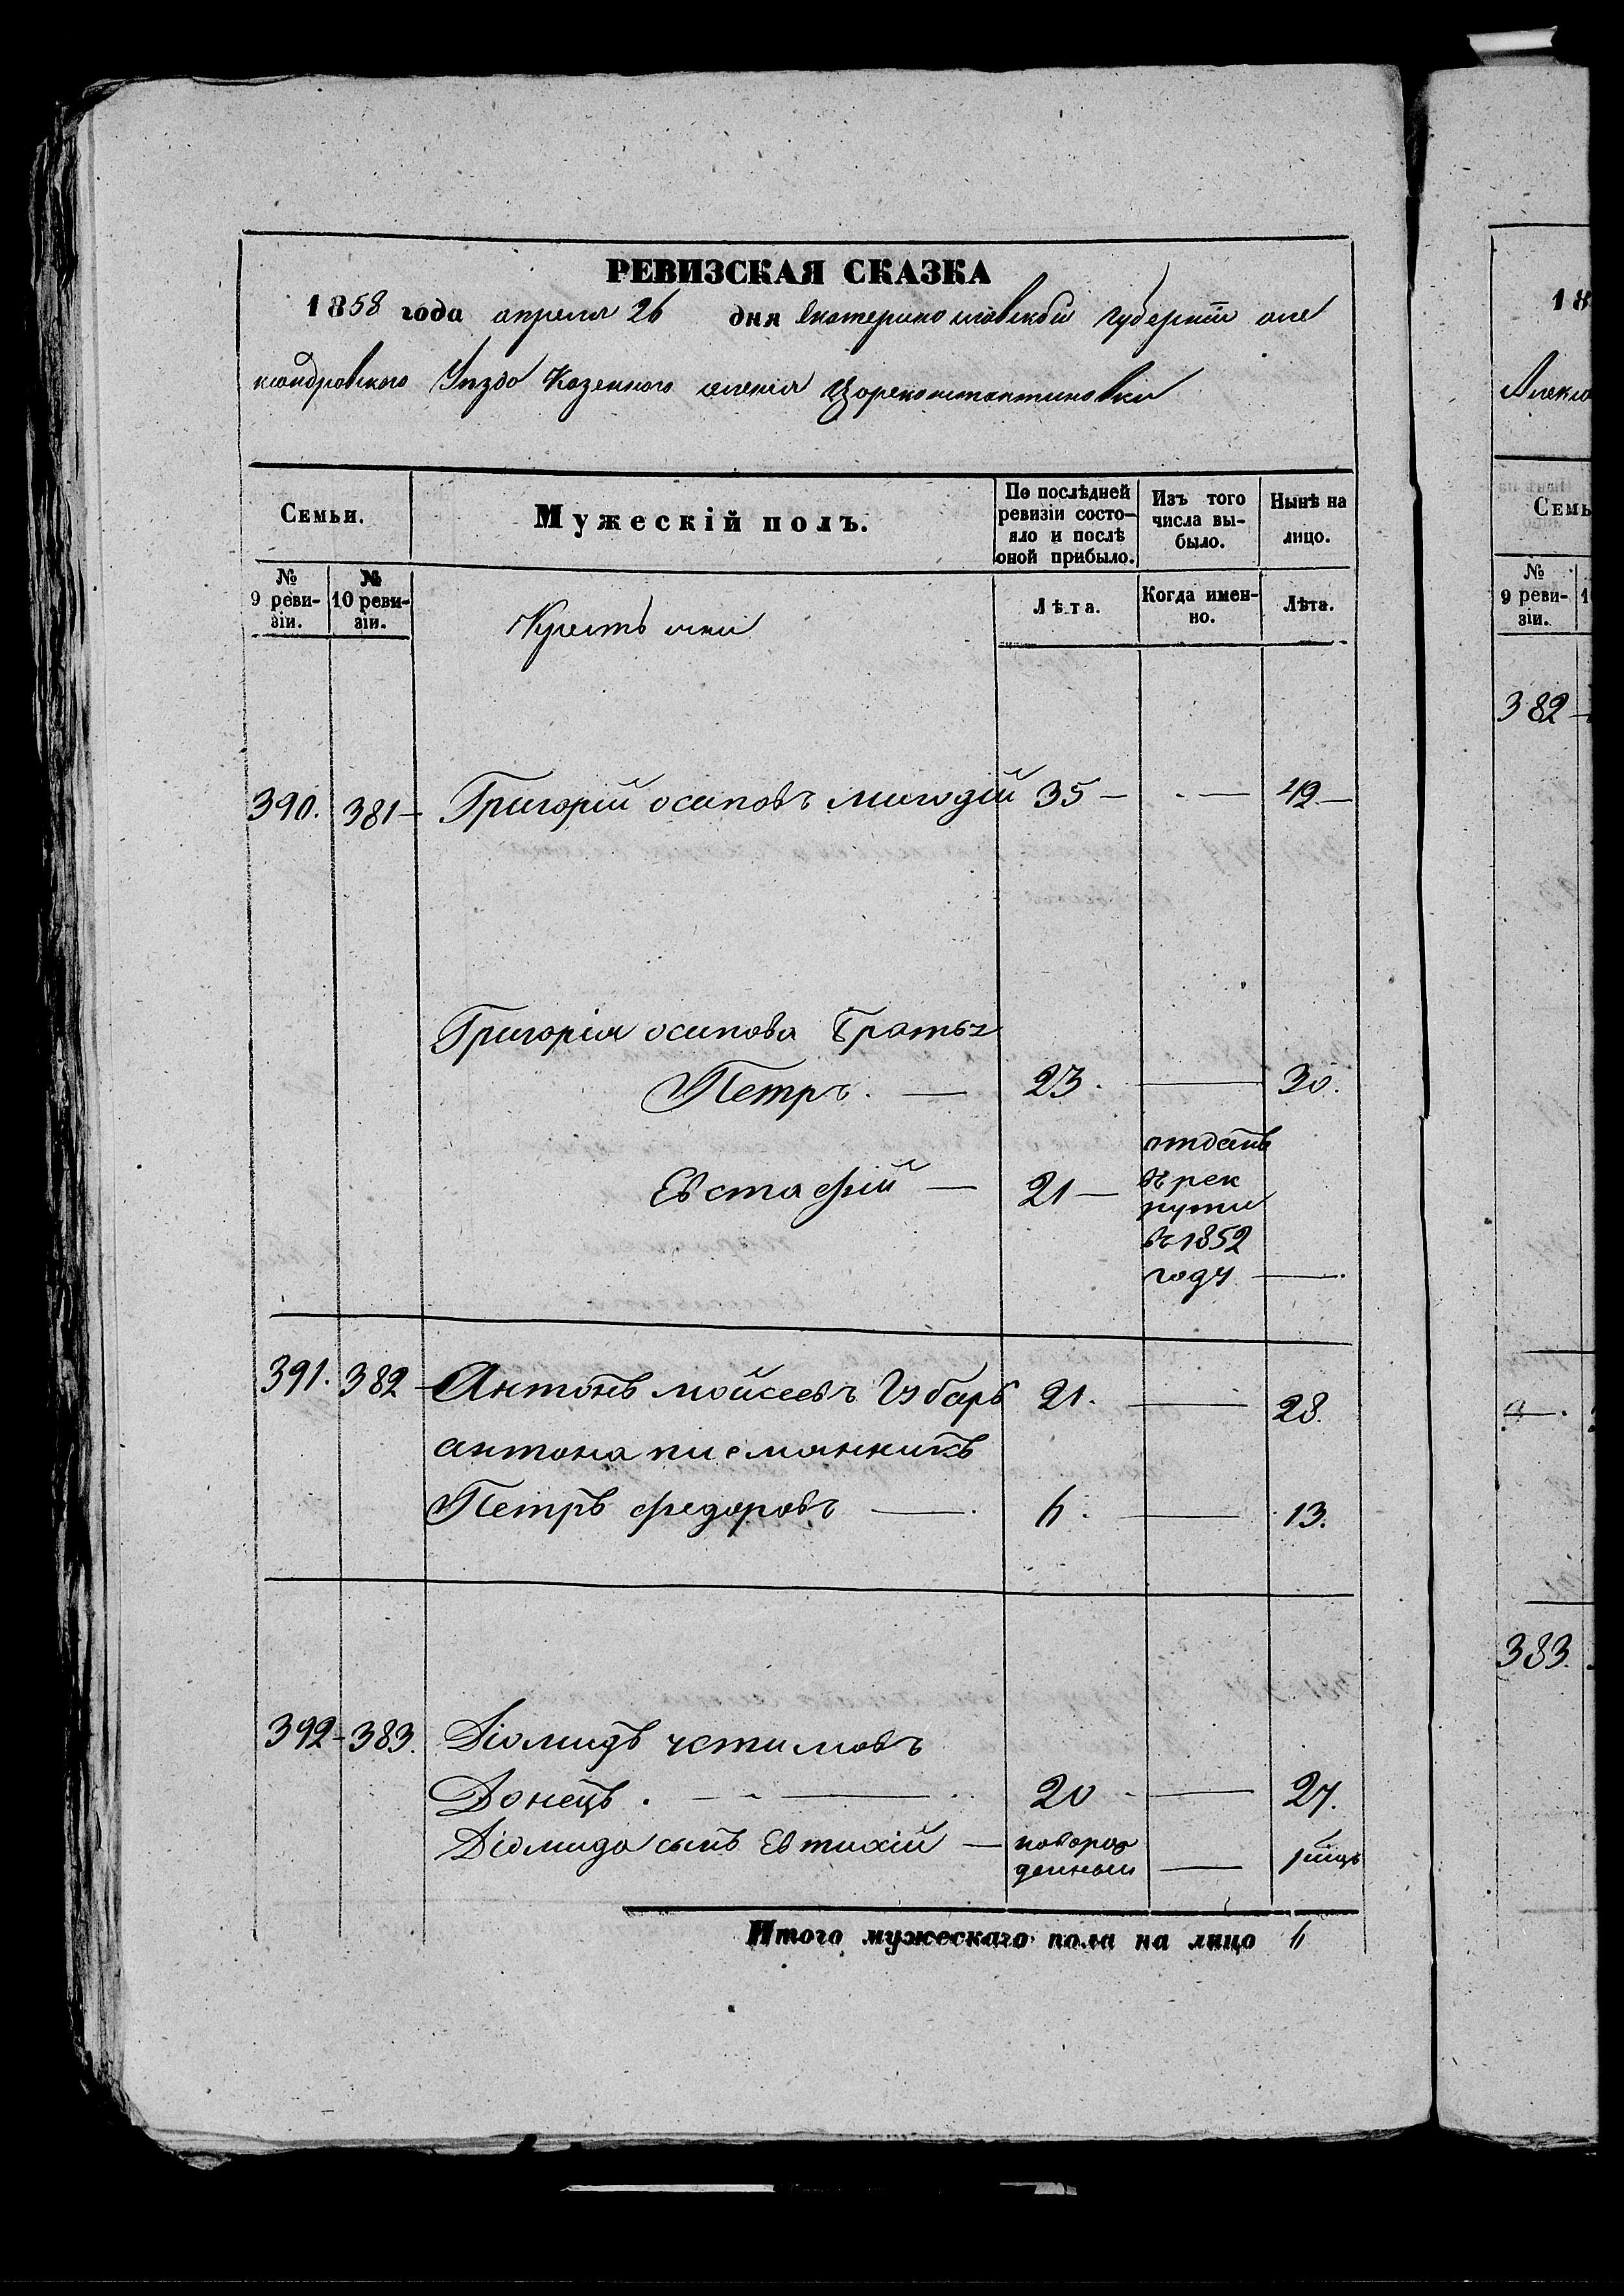 РЕВИЗСКАЯ СКАЗКА
1858 года апреля 26 дня Екатеринославской губернiи але
ксандровского Уѣзда Казенного селенiя Цареконстантиновки
Семьи.
Мужескiй полъ.
По послѣдней ревизiи состо-
яло и послѣ
оной прибыло.
Изъ того
числа вы-
было.
Нынѣ на
лицо.
№
9 реви-
зiи.
№
10 реви-
зiи.
Крестьяне
Лѣта.
Когда имен-
но.
Лѣта.
390. 381— Григорiй осиповъ 35 — — 42 —
Григорiя осипова Братья
Петръ. — 23. — 30.
Евстафiй — 21 —
отданъ
въ рек
руты
въ 1852
году —
391. 382 Антонъ мойсеевъ Губарь 21. — 28.
антона племянникъ
Петръ федоровъ — 6. — 13.
392 - 383. Дiомидъ устимовъ
Донецъ. — 20 — 27.
Дiомида сынъ Евтихiй — новорож
денный —
Итого мужескаго пола на лицо 6
18
Алекса
Семь
№
9 реви-
зiи.
1
382
383.